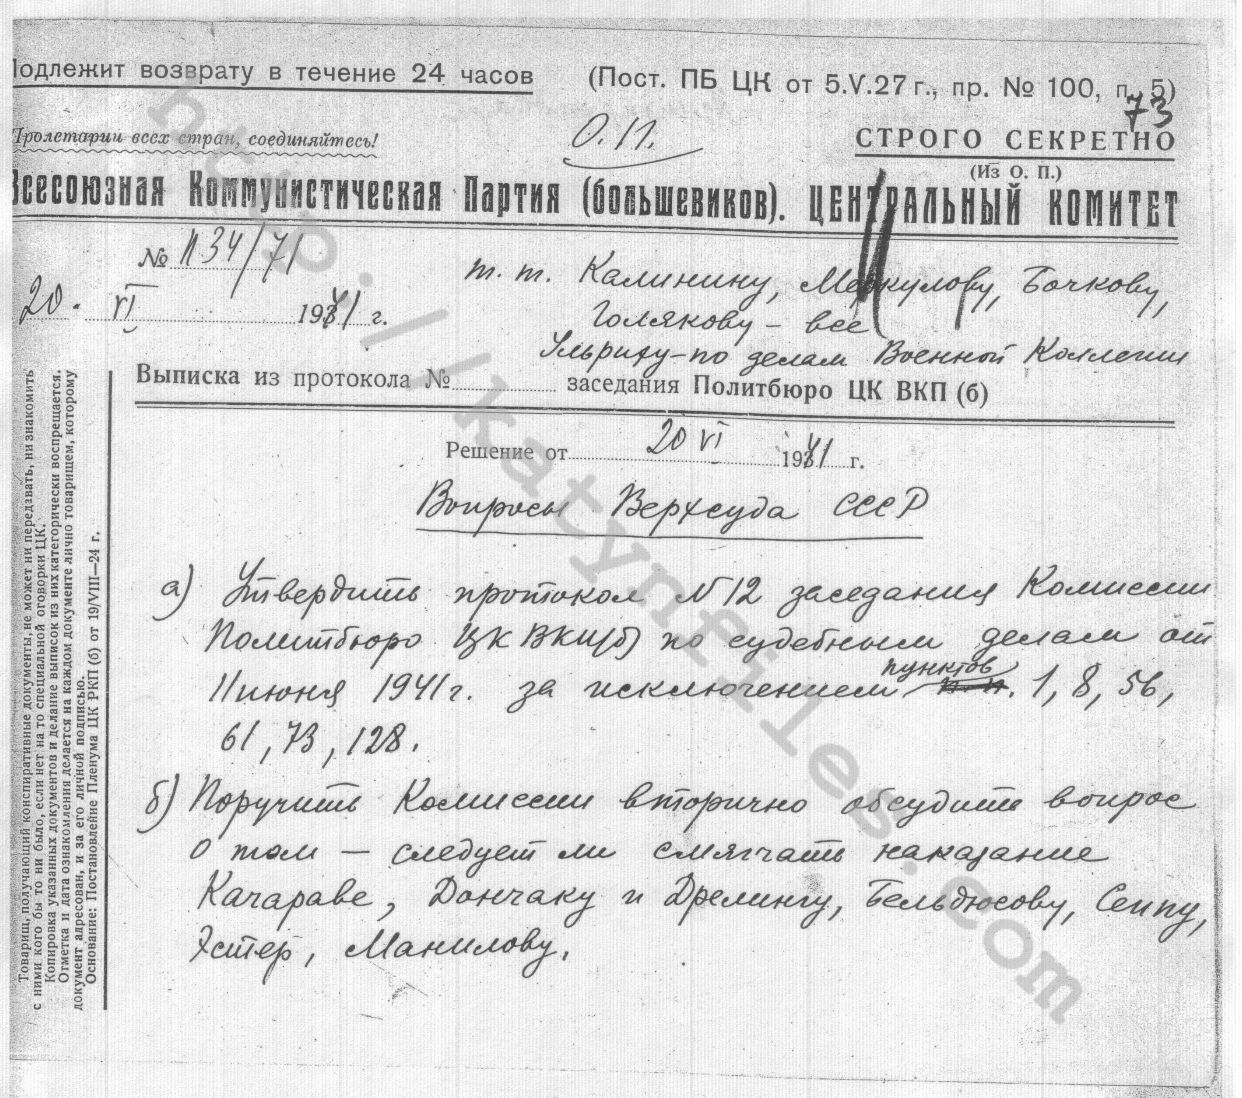 Подлежит возврату в течение 24 часов
(Пост. ПБ ЦК от 5.V.27 г., пр. № 100, п. 5)
73
Пролетарии всех стран, соединяйтесь!
О.П.
СТРОГО СЕКРЕТНО
(Из О. П.)
Всесоюзная Коммунистическая Партия (большевиков). ЦЕНТРАЛЬНЫЙ КОМИТЕТ
№ П34/71
20. VI 1941 г.
т. т. Калинину, Меркулову, Бочкову,
Голякову – все
Ульриху – по делам Военной Коллегии
Выписка из протокола № заседания Политбюро ЦК ВКП (б)
Решение от 20 VI 1941 г.
Вопросы Верхсуда СССР
а) Утвердить протокол №12 заседания Комиссии
Политбюро ЦК ВКП(б) по судебным делам от
11 июня 1941 г. за исключением пунктов 1, 8, 56,
61, 73, 128.
б) Поручить Комиссии вторично обсудить вопрос
о том — следует ли смягчать наказание
Качараве, Дончаку и Дрелингу, Бельдюсову, Сеппу,
Эстер, Манилову.
Товарищ, получающий конспиративные документы, не может ни передавать, ни знакомить
с ними кого бы то ни было, если нет на то специальной оговорки ЦК.
Копировка указанных документов и делание выписок из них категорически воспрещается.
Отметка и дата ознакомления делается на каждом документе лично товарищем, которому
документ адресован, и за его личной подписью.
Основание: Постановление Пленума ЦК РКП (б) от 19/VIII—24 г.
http://katynfiles.com